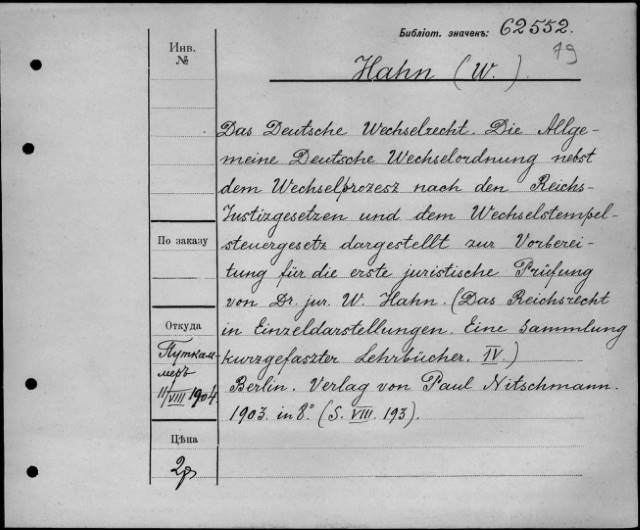 Библіот. значекъ: 62552.
79
Инв.
№
Hahn (W.).
Das Deutsche Wechselrecht. Die Allge-
meine Deutsche Wechselordnung nebst
dem Wechselprozesz nach den Reichs-
Justizgesetzen und dem Wechselstempel-
По заказу
steuergesetz dargestellt zur Vorberei-
tung für die erste juristische Prüfung
von Dr. jur. W. Hahn. (Das Reichsrecht
Откуда
in Einzeldarstellungen. Eine Sammlung
Путкам-
меръ
11/VIII 1904
kurzgefaszter Lehrbücher. IV.)
Berlin. Verlag von Paul Nitschmann.
1903. in 8º (S. VIII. 193).
Цѣна
2р